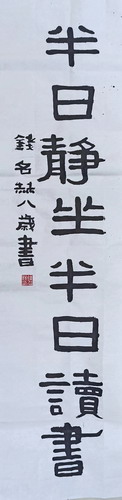 半日靜坐半日讀書
錢名赫八歲書